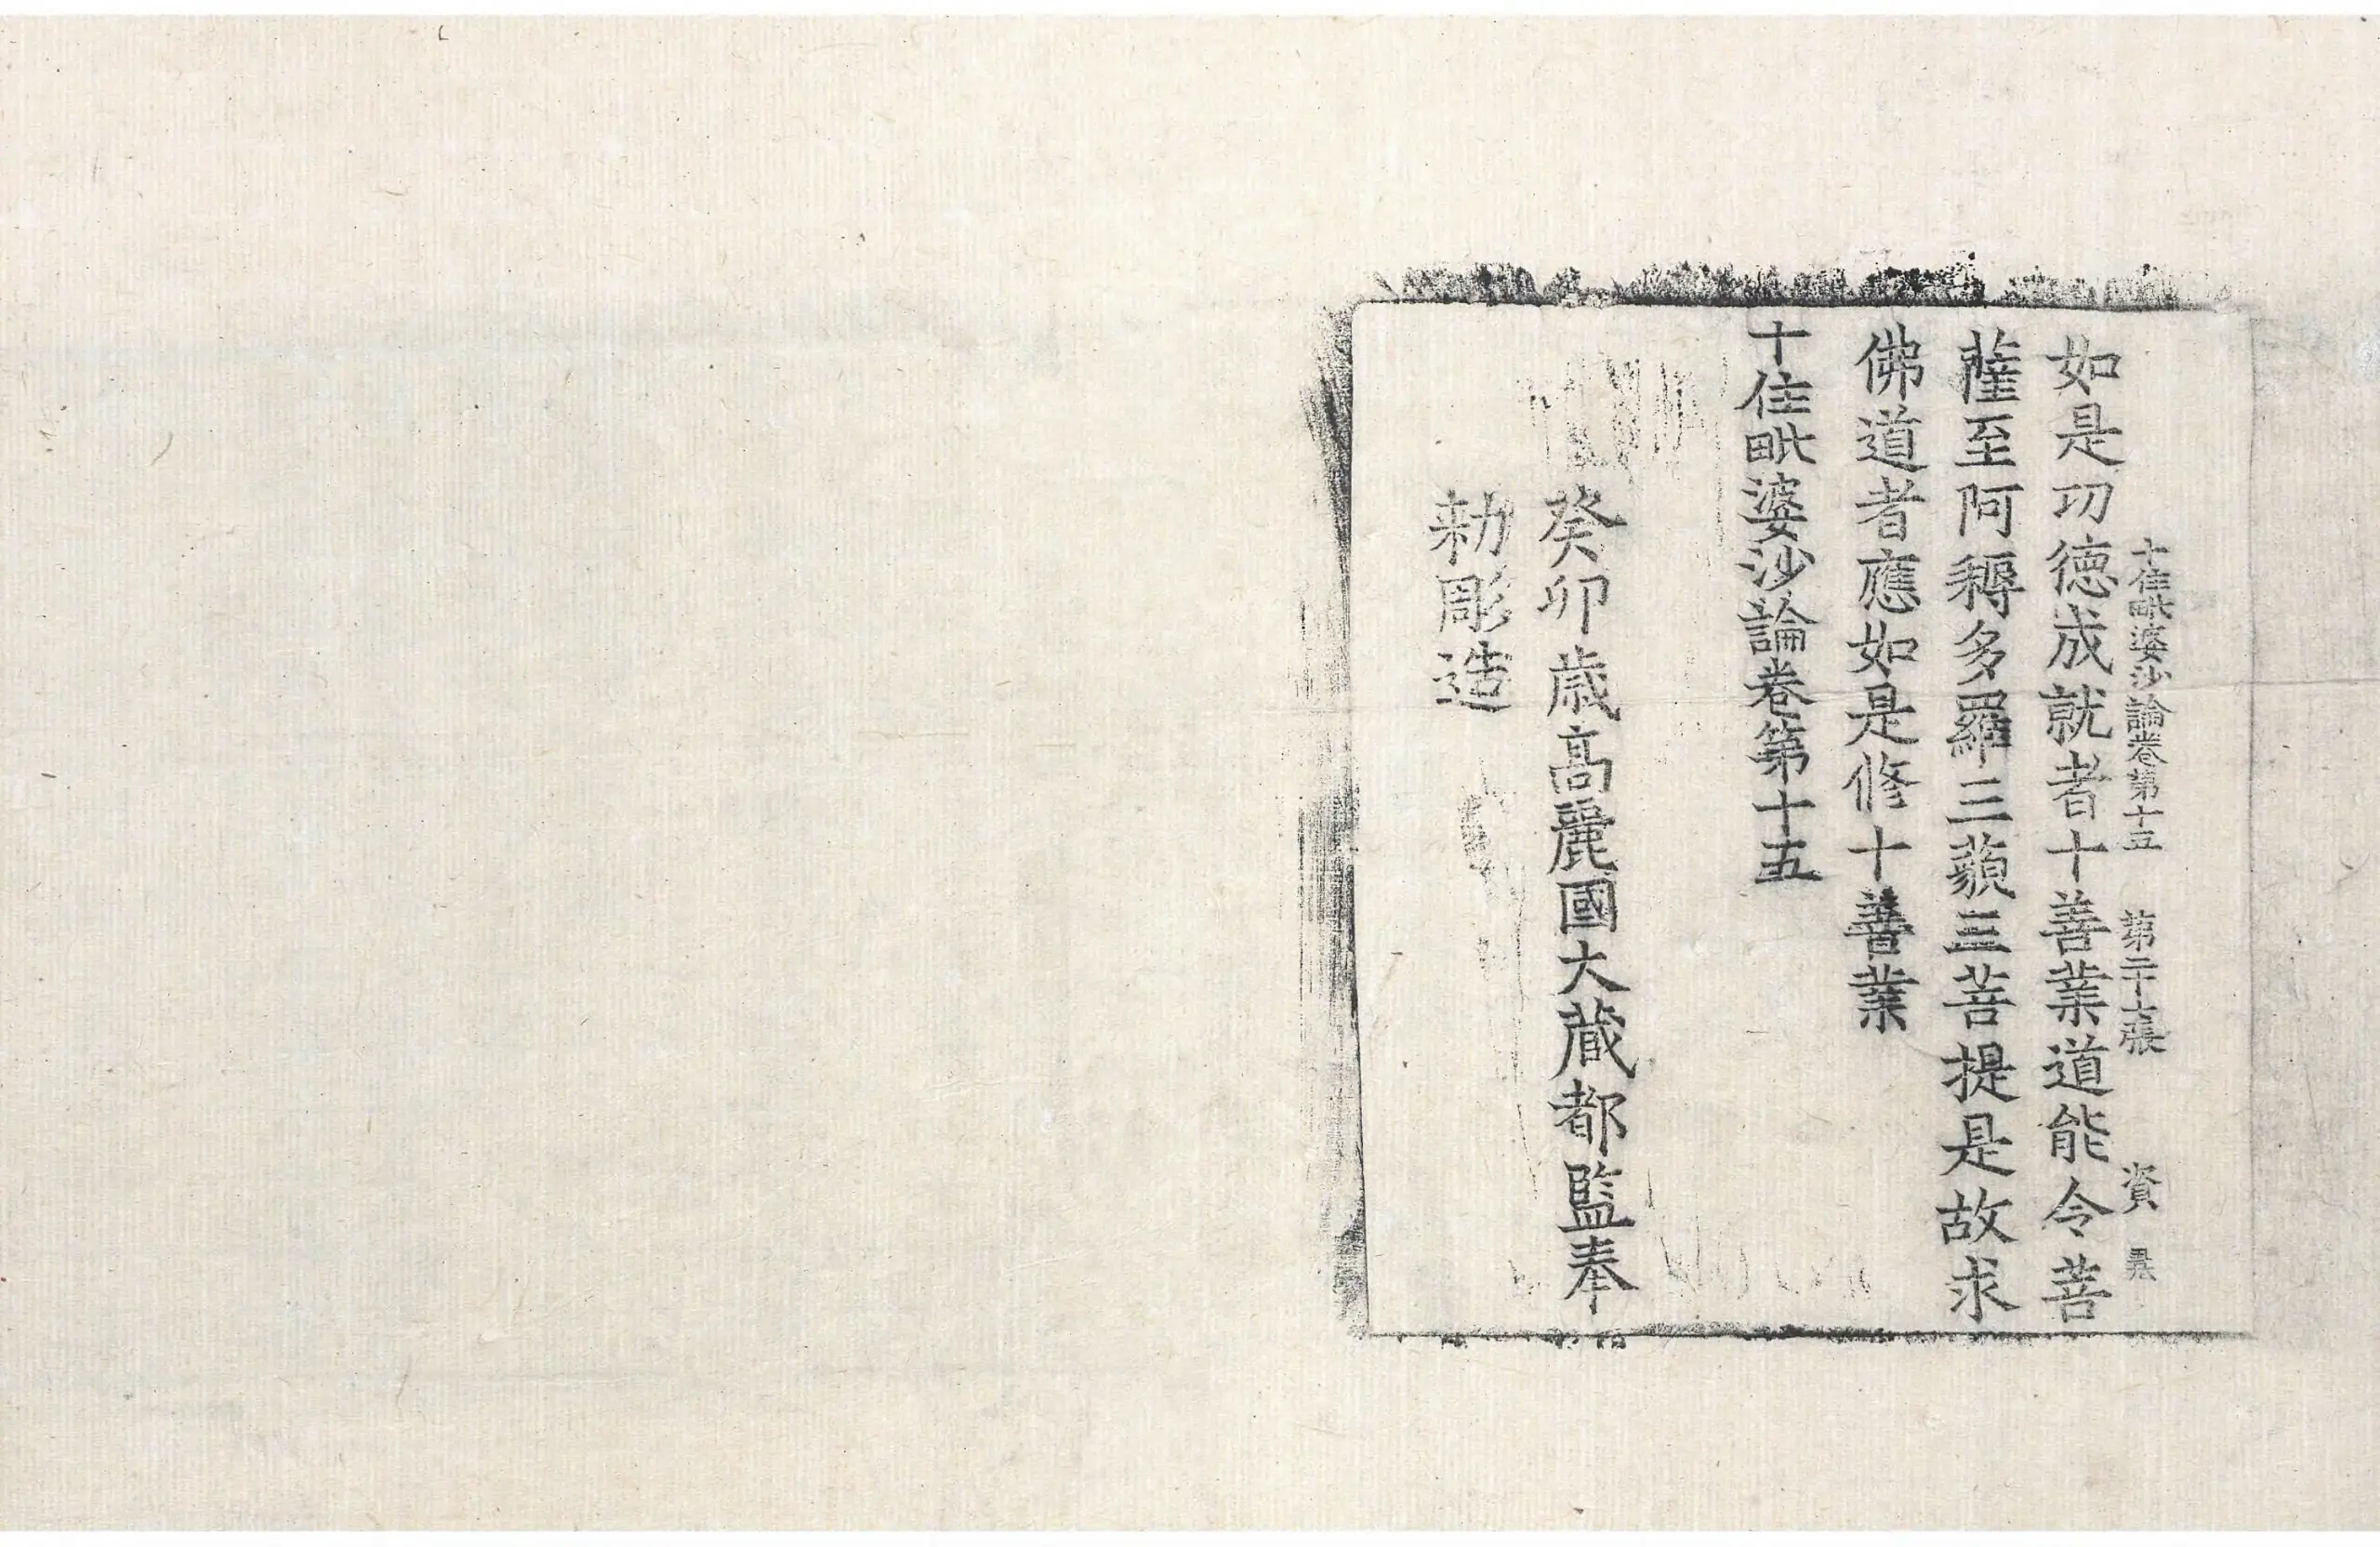 十住毗婆沙論卷第十五 第二十七張 資
如是功德成就者十善業道能令菩
薩至阿耨多羅三藐三菩提是故求
佛道者應如是修十善業
十住毗婆沙論卷第十五
癸卯歲高麗國大藏都監奉
勑彫造